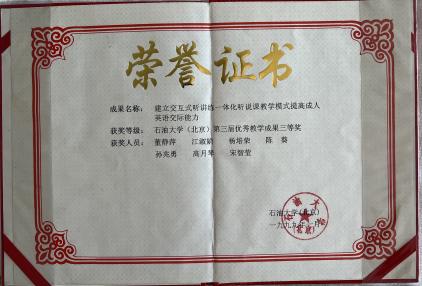 荣誉证书
成果名称： 建立交互式听讲练一体化听说课教学模式提高成人
英语交际能力
获奖等级： 石油大学（北京）第三届优秀教学成果三等奖
获奖人员： 董静萍 江淑娟 杨培荣 陈葵
孙兆勇 高月琴 宋智莹
石油大学（北京）
一九九九年一月